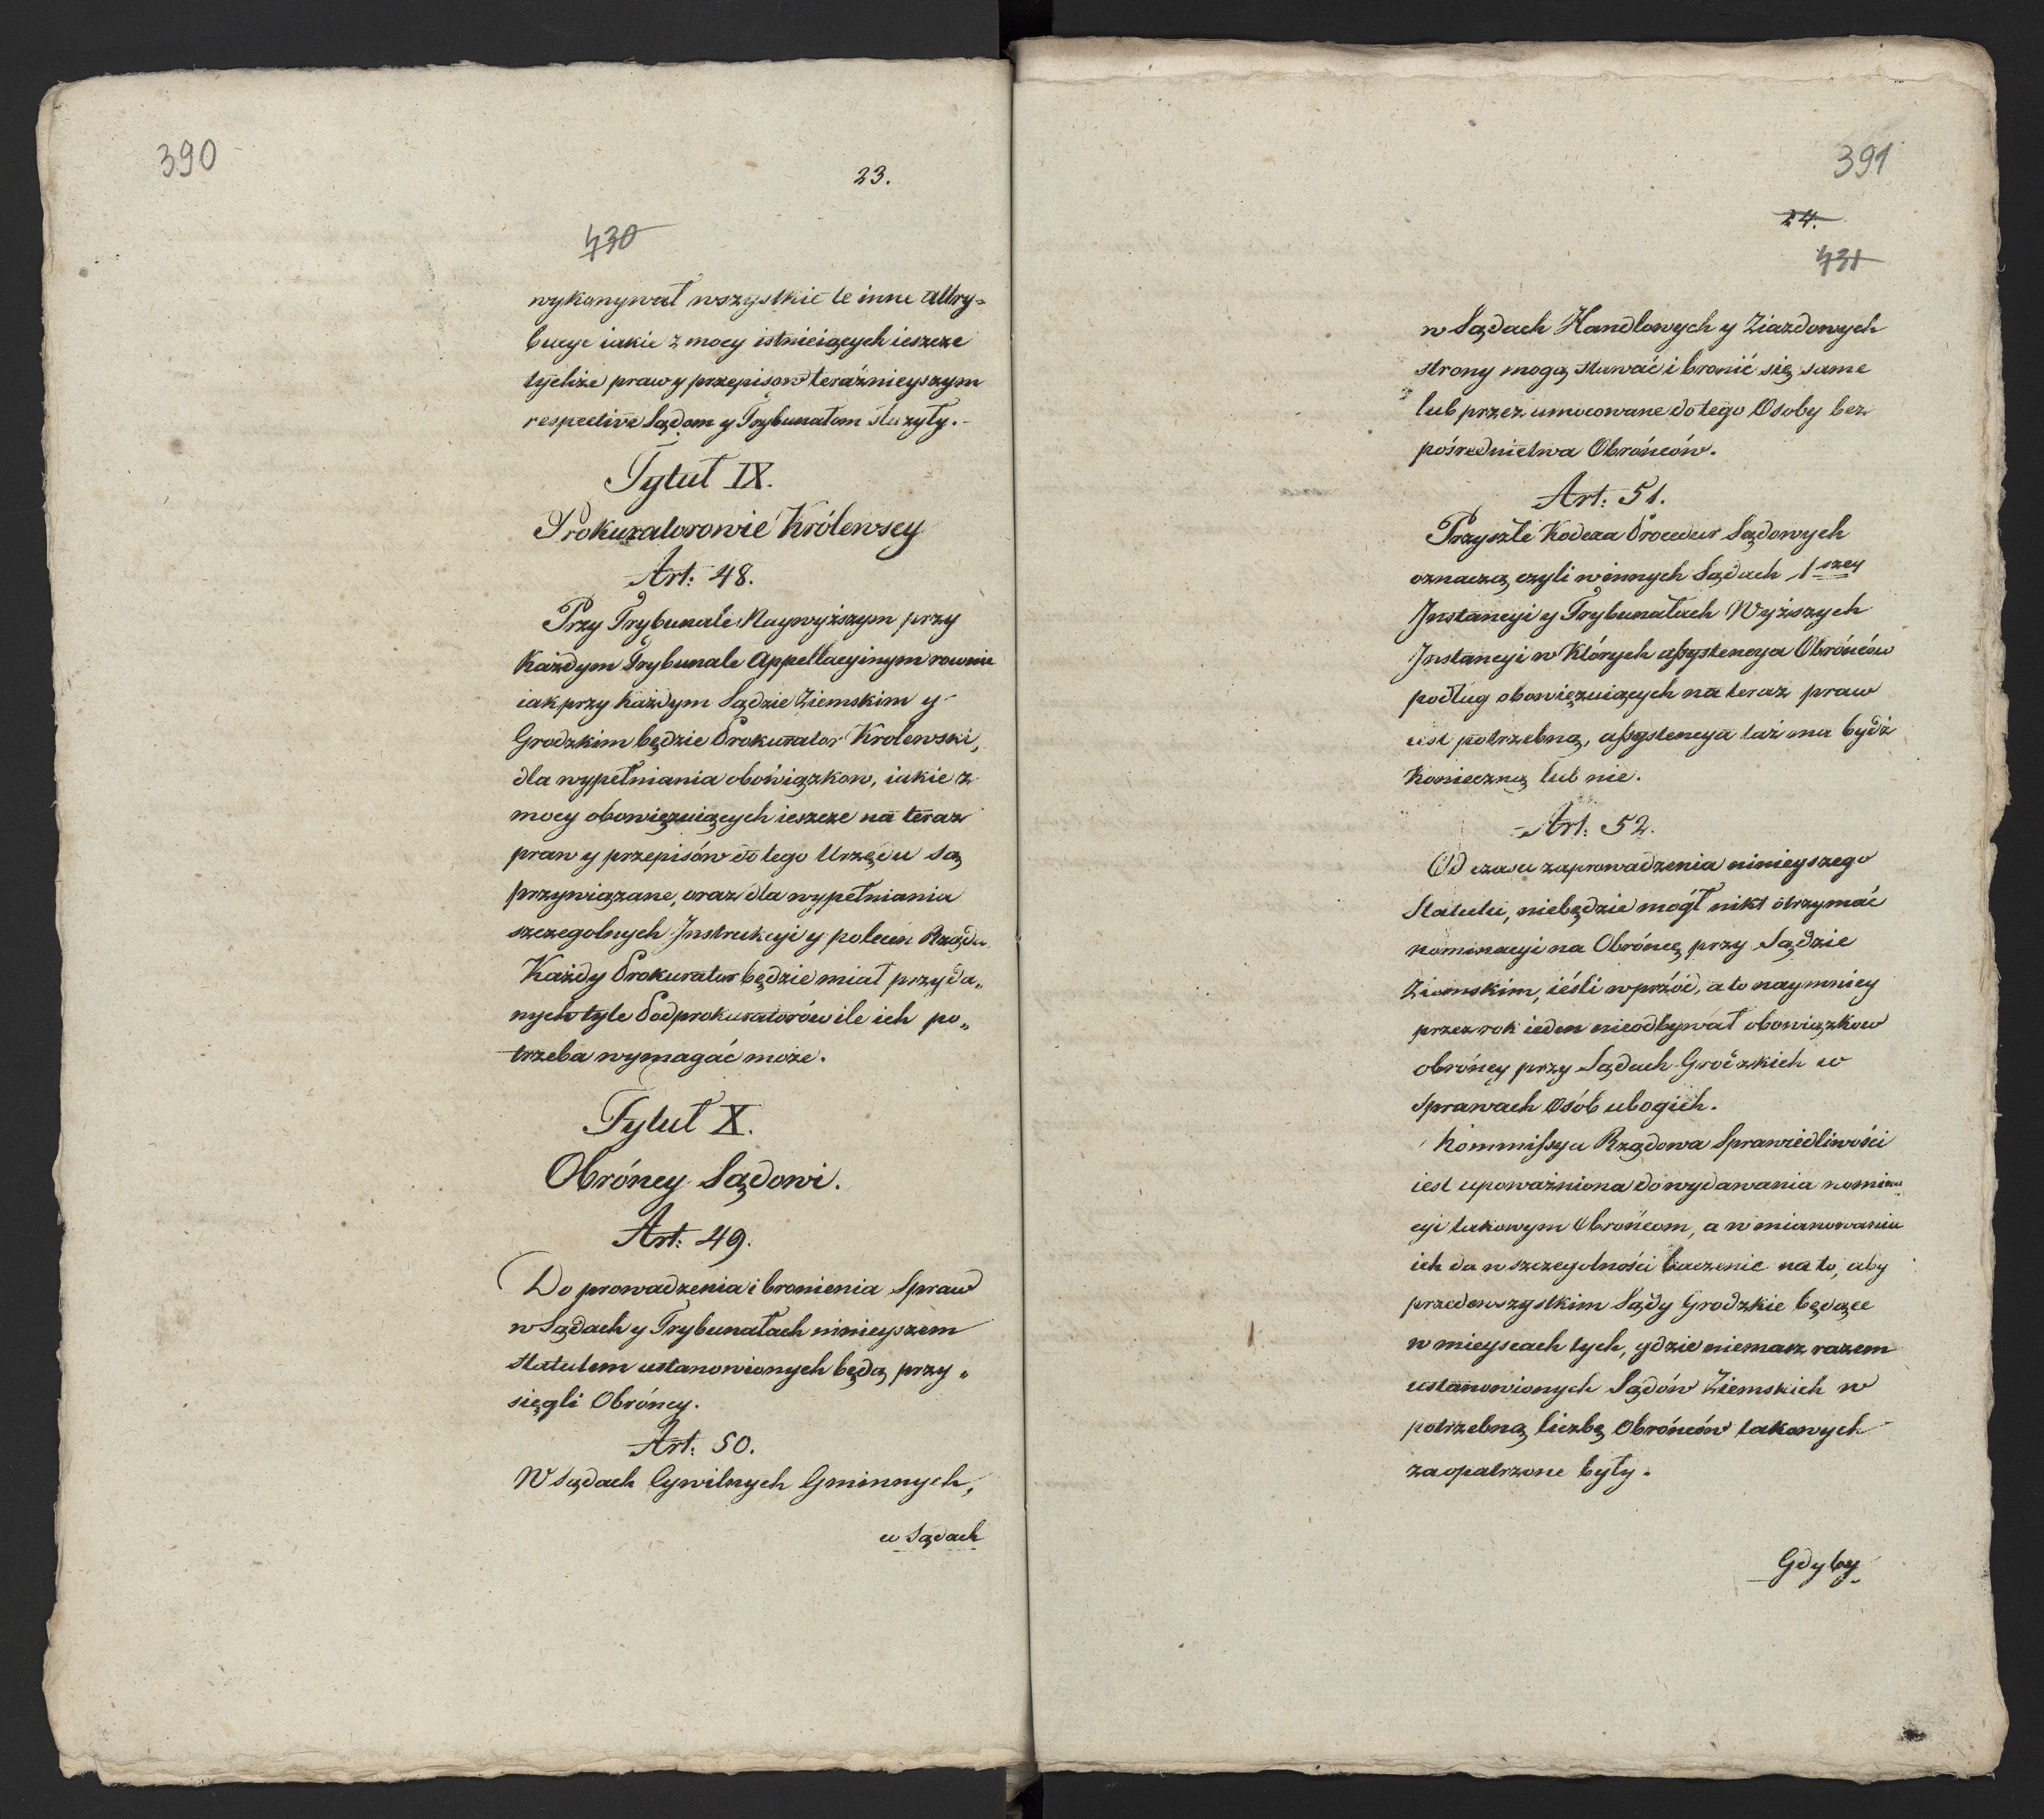 390
23.
430
wykonywał wszystkie te inne attry=
bucye iakie z mocy istnieiących ieszcze
tychże praw y przepisow teraźnieyszym
respective Sądom y Trybunałom służyły.
Tytuł IX.
Prokuratorowie Królewscy
Art: 48.
Przy Trybunale Naywyższym przy
Każdym Trybunale Appellacyinym rownie
iak przy każdym Sądzie Ziemskim y
Grodzkim będzie Prokurator Krolewski,
dla wypełniania obowiązkow, iakie z
mocy obowięzuiących ieszcze na teraz
praw y przepisów do tego Urzędu są
przywiązane, oraz dla wypełniania
szczegolnych Instrukcyi y polecen Rządu.
Każdy Prokurator będzie miał przyda„
nych tyle Podprokuratorów ile ich po„
trzeba wymagać może.
Tytuł X.
Obrońcy Sądowi.
Art: 49.
Do prowadzenia i bronienia Spraw
w Sądach y Trybunałach ninieyszem
Statutem ustanowionych będą przy„
sięgli Obrońcy.
Art: 50.
W Sądach Cywilnych Gminnych,
w Sądach
391
24.
431
w Sądach Handlowych y Ziazdowych
strony mogą stawać i bronić się same
lub przez umocowane do tego Osoby bez
pośrednictwa Obrońców.
Art: 51.
Przyszłe Kodexa Procedur Sądowych
oznaczą, czyli w innych Sądach 1szey
Instancyi y Trybunałach Wyższych
Instancyi w Których assystencya Obrońców
podług obowięzuiących na teraz praw
iest potrzebną, assystencya taż ma bydź
Konieczną lub nie.
Art: 52.
Od czasu zaprowadzenia ninieyszego
Statutu, niebędzie mógł nikt otrzymać
nominacyi na Obrońcę przy Sądzie
Ziemskim, ieśli wprzód, a to naymniey
przez rok ieden nieodbywał obowiązkow
obrońcy przy Sądach Grodzkich w
Sprawach Osób ubogich.
Kommissya Rządowa Sprawiedliwości
iest upoważniona do wydawania nomina
cyi takowym Obrońcom, a w mianowaniu
ich da w szczegolności baczenie na to, aby
przedewszystkim Sądy Grodzkie będące
w mieyscach tych, gdzie niemasz razem
ustanowionych Sądów Ziemskich w
potrzebną liczbę Obrońców takowych
zaopatrzone były.
Gdyby